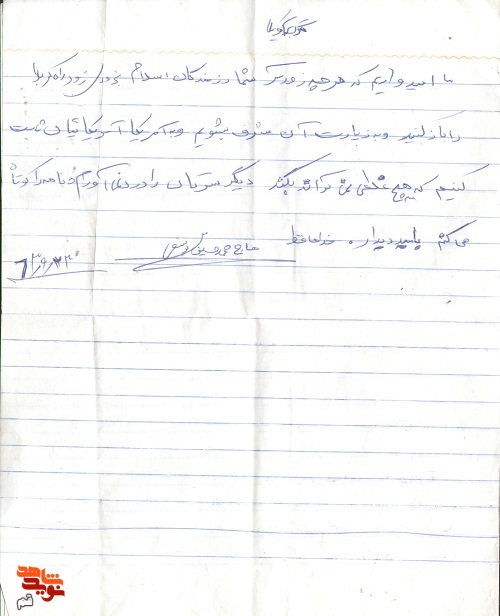 ما امیدواریم که هر چه زودتر شما رزمندگان اسلام بزودی زود راه کربلا
را باز کنید و به زیارت آن مشرف بشویم و به آمریکا آمریکائیان ثابت
کنیم که هیچ غلطی نمی توانند بکنند دیگر سرتان را درد نمی آورم و نامه را کوتاه
می کنم بامید دیدار. خداحافظ
حاج
نوید شاهد
قم